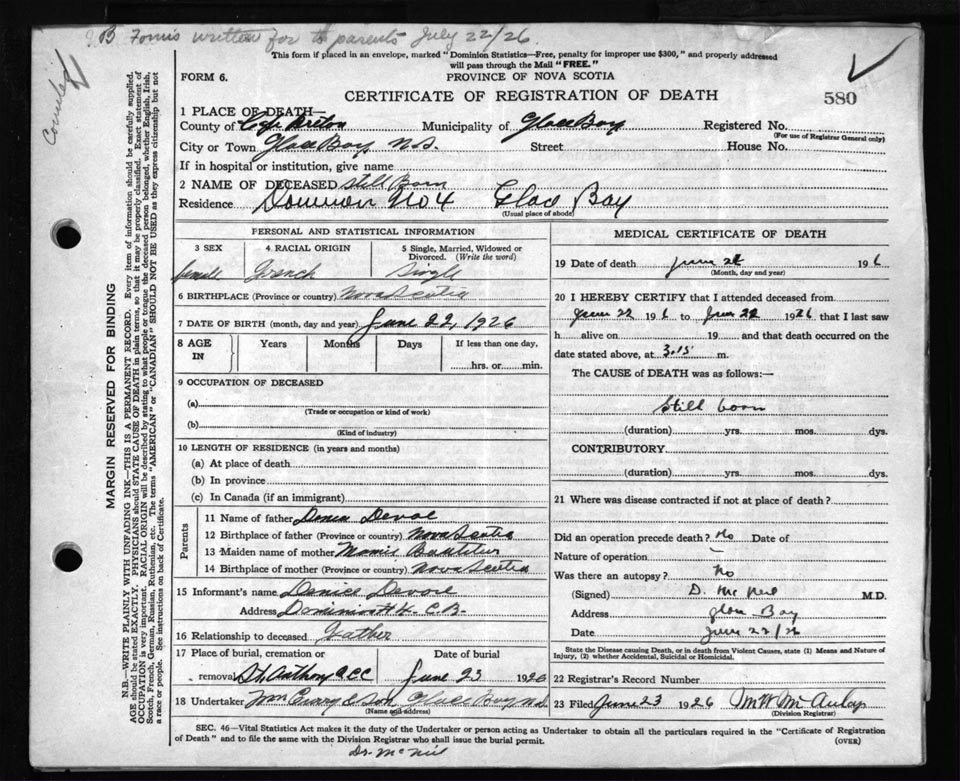 B Forms written for to parents July 22/26
Counted
This form if placed in an envelope, marked "Dominion Statistics—Free, penalty for improper use $300," and properly addressed
will pass through the Mail "FREE."
FORM 6.
PROVINCE OF NOVA SCOTIA
CERTIFICATE OF REGISTRATION OF DEATH
580
1 PLACE OF DEATH—
County of Cape Breton Municipality of Glace Bay Registered No.
(For use of Registrar General only)
City or Town Glace Bay N.S. Street House No.
If in hospital or institution, give name
2 NAME OF DECEASED Still Born
Residence Dominion No 4 Glace Bay
(Usual place of abode)
PERSONAL AND STATISTICAL INFORMATION
3 SEX 4 RACIAL ORIGIN 5 Single, Married, Widowed or
Divorced. (Write the word)
female French Single
6 BIRTHPLACE (Province or country) Nova Scotia
7 DATE OF BIRTH (month, day and year) June 22, 1926
8 AGE IN Years Months Days If less than one day,
hrs. or min.
9 OCCUPATION OF DECEASED
(a)
(Trade or occupation or kind of work)
(b)
(Kind of industry)
10 LENGTH OF RESIDENCE (in years and months)
(a) At place of death
(b) In province
(c) In Canada (if an immigrant)
Parents
11 Name of father Devoe
12 Birthplace of father (Province or country) Nova Scotia
13 Maiden name of mother
14 Birthplace of mother (Province or country) Nova Scotia
15 Informant's name
Address Dominion # 4 C.B.
16 Relationship to deceased Father
17 Place of burial, cremation or Date of burial
removal St. Anthony June 23 1926
18 Undertaker & Son, Glace Bay N.S.
(Name and address)
MEDICAL CERTIFICATE OF DEATH
19 Date of death June 22 1926
(Month, day and year)
20 I HEREBY CERTIFY that I attended deceased from
June 22 1926 to June 22 1926 that I last saw
h alive on 19 and that death occurred on the
date stated above, at 3.15 m.
The CAUSE of DEATH was as follows:—
Still born
(duration) yrs. mos. dys.
CONTRIBUTORY
(duration) yrs. mos. dys.
21 Where was disease contracted if not at place of death?
Did an operation precede death? No Date of
Nature of operation —
Was there an autopsy? No
(Signed) D. McNeil M.D.
Address Glace Bay
Date June 22/26
State the Disease causing Death, or in death from Violent Causes, state (1) Means and Nature of
Injury, (2) whether Accidental, Suicidal or Homicidal.
22 Registrar's Record Number
23 Filed June 23 1926 M W McAulay
(Division Registrar)
SEC. 46—Vital Statistics Act makes it the duty of the Undertaker or person acting as Undertaker to obtain all the particulars required in the "Certificate of Registration
of Death" and to file the same with the Division Registrar who shall issue the burial permit.
(OVER)
Dr. McNeil
MARGIN RESERVED FOR BINDING
N.B.—WRITE PLAINLY WITH UNFADING INK—THIS IS A PERMANENT RECORD. Every item of information should be carefully supplied.
AGE should be stated EXACTLY. PHYSICIANS should STATE CAUSE OF DEATH in plain terms, so that it may be properly classified. Exact statement of
OCCUPATION is very important. RACIAL ORIGIN will be described by stating to what people or tongue the deceased person belonged, whether English, Irish,
Scotch, French, German, Russian, Ruthenian, etc. The terms "AMERICAN" or "CANADIAN" SHOULD NOT BE USED as they express citizenship but not
a race or people. See instructions on back of Certificate.